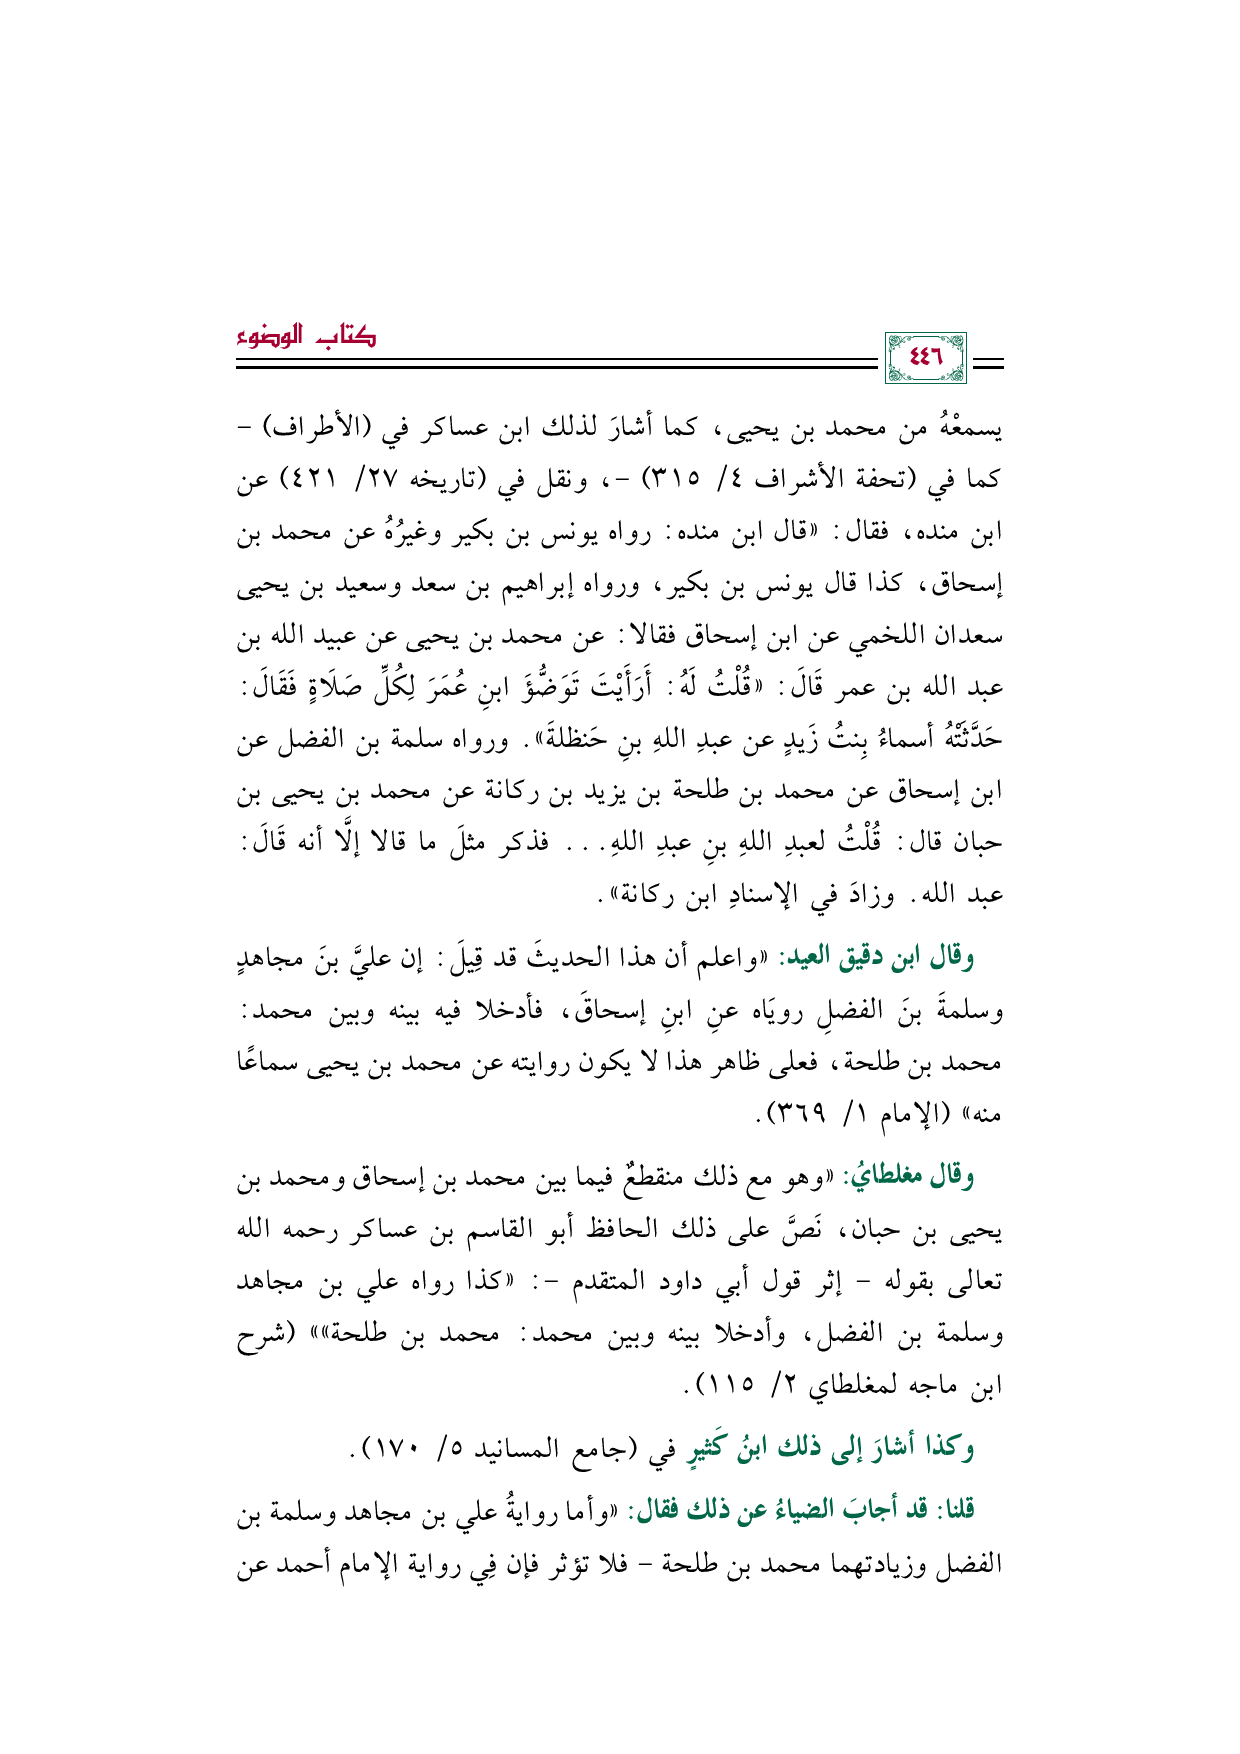 كتاب الوضوء
٤٤٦
يسمعْهُ من محمد بن يحيى، كما أشارَ لذلك ابن عساكر في (الأطراف) -
كما في (تحفة الأشراف ٤/ ٣١٥) -، ونقل في (تاريخه ٢٧/ ٤٢١) عن
ابن منده، فقال: «قال ابن منده: رواه يونس بن بكير وغيرُهُ عن محمد بن
إسحاق، كذا قال يونس بن بكير، ورواه إبراهيم بن سعد وسعيد بن يحيى
سعدان اللخمي عن ابن إسحاق فقالا: عن محمد بن يحيى عن عبيد الله بن
عبد الله بن عمر قَالَ: «قُلْتُ لَهُ: أَرَأَيْتَ تَوَضُّؤَ ابنِ عُمَرَ لِكُلِّ صَلَاةٍ فَقَالَ:
حَدَّثَتْهُ أسماءُ بِنتُ زَيدٍ عن عبدِ اللهِ بنِ حَنظلةَ». ورواه سلمة بن الفضل عن
ابن إسحاق عن محمد بن طلحة بن يزيد بن ركانة عن محمد بن يحيى بن
حبان قال: قُلْتُ لعبدِ اللهِ بنِ عبدِ اللهِ... فذكر مثلَ ما قالا إلَّا أنه قَالَ:
عبد الله. وزادَ في الإسنادِ ابن ركانة».
وقال ابن دقيق العيد: «واعلم أن هذا الحديثَ قد قِيلَ: إن عليَّ بنَ مجاهدٍ
وسلمةَ بنَ الفضلِ رويَاه عنِ ابنِ إسحاقَ، فأدخلا فيه بينه وبين محمد:
محمد بن طلحة، فعلى ظاهر هذا لا يكون روايته عن محمد بن يحيى سماعًا
منه» (الإمام ١/ ٣٦٩).
وقال مغلطايُ: «وهو مع ذلك منقطعٌ فيما بين محمد بن إسحاق ومحمد بن
يحيى بن حبان، نَصَّ على ذلك الحافظ أبو القاسم بن عساكر رحمه الله
تعالى بقوله - إثر قول أبي داود المتقدم -: «كذا رواه علي بن مجاهد
وسلمة بن الفضل، وأدخلا بينه وبين محمد: محمد بن طلحة»» (شرح
ابن ماجه لمغلطاي ٢/ ١١٥).
وكذا أشارَ إلى ذلك ابنُ كَثيرٍ في (جامع المسانيد ٥/ ١٧٠).
قلنا: قد أجابَ الضياءُ عن ذلك فقال: «وأما روايةُ علي بن مجاهد وسلمة بن
الفضل وزيادتهما محمد بن طلحة - فلا تؤثر فإن فِي رواية الإمام أحمد عن